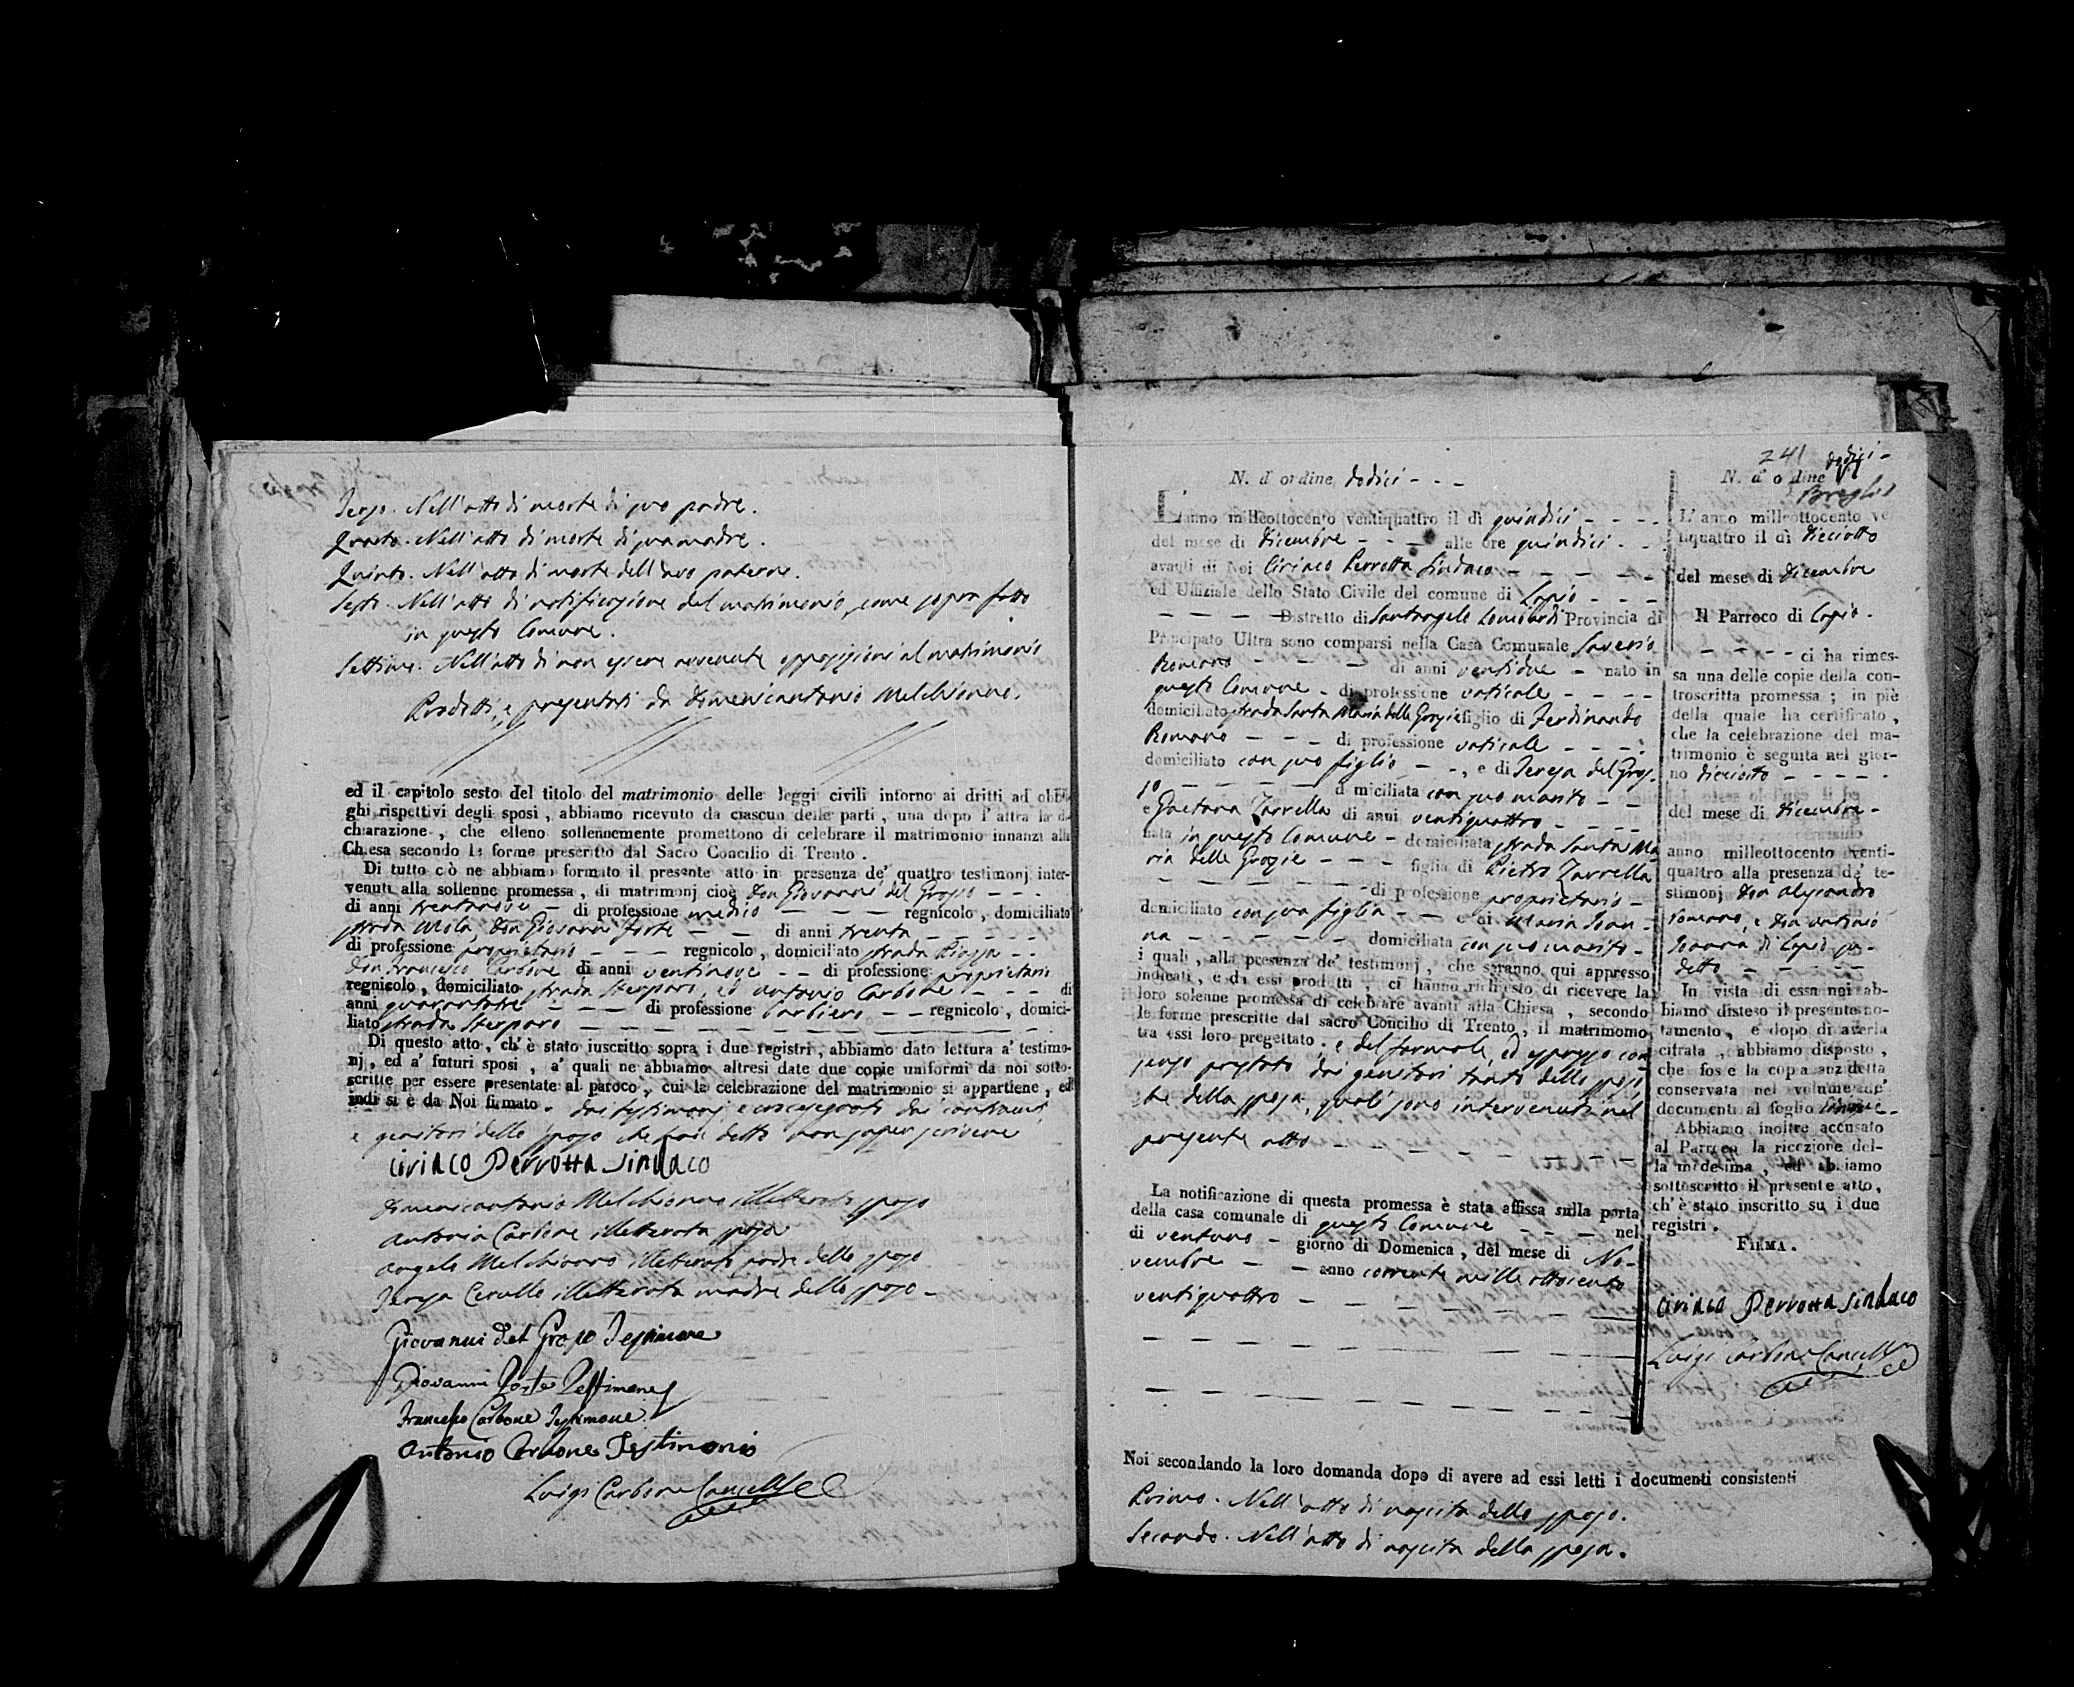 Terzo. Nell'atto di morte di suo padre.
Quarto. Nell'atto di morte di sua madre.
Quinto. Nell'atto di morte dell'avo paterno.
Sesto. Nell'atto di notificazione del matrimonio, come sopra fatto
in questo Comune.
Settimo. Nell'atto di non essere avvenute opposizioni al matrimonio
Prodotti, e presentati da Domenicantonio Melchionno.
ed il capitolo sesto del titolo del matrimonio delle leggi civili intorno ai dritti ad obbli-
ghi rispettivi degli sposi, abbiamo ricevuto da ciascun delle parti, una dopo l'altra la di-
chiarazione, che elleno sollennemente promettono di celebrare il matrimonio innanzi alla
Chiesa secondo le forme prescritto dal Sacro Concilio di Trento.
Di tutto ciò ne abbiamo formato il presente atto in presenza de' quattro testimonj inter-
venuti alla sollenne promessa, di matrimonj cioè Don Giovanni del Grosso - - -
di anni trentanove - di professione medico - - - regnicolo, domiciliato
strada Mola, Don Giovanni Forte - - di anni trenta - - - - -
di professione proprietario - - - regnicolo, domiciliato strada Piazza - -
Don Francesco Carbone di anni ventinove - - di professione proprietario
regnicolo, domiciliato strada Sterparo, ed Antonio Carbone - - - di
anni quarantatre - - - di professione barbiere - - regnicolo, domici-
liato strada Sterparo - - - - - - - - - - -
Di questo atto, ch'è stato iuscritto sopra i due registri, abbiamo dato lettura a' testimo-
nj, ed a' futuri sposi, a' quali ne abbiamo altresi date due copie uniformi da noi sotto-
scritte per essere presentate al paroco, cui la celebrazione del matrimonio si appartiene, ed
indi si è da Noi firmato. dai testimonj, e dai contraenti
e genitori dello sposo che han detto non saper scrivere
Ciriaco Perrotta Sindaco
Domenicantonio Melchionno illetterato sposo
Antonia Carbone illetterata sposa
Angelo Melchionno illetterato padre dello sposo
Teresa Cerullo illetterata madre dello sposo -
Giovanni Del Grosso Testimone
Giovanni Forte Testimone
Francesco Carbone Testimone
Antonio Carbone Testimonio
Luigi Carbone Cancelle
N. d'ordine dodici - - -
L'anno milleottocento ventiquattro il dì quindici - - - -
del mese di Dicembre - - - alle ore quindici - -
avanti di Noi Ciriaco Perrotta Sindaco - - - - -
ed Uffiziale dello Stato Civile del comune di Lapio - - -
- - - - Distretto di Santangelo Lombardi Provincia di
Principato Ultra sono comparsi nella Casa Comunale Saverio
Romano - - - di anni ventidue - nato in
questo Comune - di professione vaticale - - - -
domiciliato strada Santa Maria delle Grazie figlio di Ferdinando
Romano - - - di professione vaticale - - - -
domiciliato con suo figlio - -, e di Teresa del Gros-
so - - - - - domiciliata con suo marito - -
e Gaetana Zarrella di anni ventiquattro - - - -
nata in questo Comune - domiciliata strada Santa Ma-
ria delle Grazie - - - figlia di Pietro Zarrella
- - - - - - di professione proprietario -
domiciliato con sua figlia - - e di Maria Ioan-
na - - - - - domiciliata con suo marito -
i quali, alla presenza de' testimonj, che saranno qui appresso
indicati, e da essi prodotti, ci hanno richiesto di ricevere la
loro solenne promessa di celebrare avanti alla Chiesa, secondo
le forme prescritte dal sacro Concilio di Trento, il matrimomo
tra essi loro pregettato. e del formale, ed espresso con
senso prestato dai genitori tanto dello sposo
che della sposa, quali sono intervenuti nel
presente atto - - - - - - - -
La notificazione di questa promessa è stata affissa sulla porta
della casa comunale di questo Comune - - - nel
di ventuno - giorno di Domenica, del mese di No-
vembre - - anno corrente mille ottocento
ventiquattro - - - - - - -
Noi secondando la loro domanda dopo di avere ad essi letti i documenti consistenti
Primo. Nell'atto di nascita dello sposo.
Secondo. Nell'atto di nascita della sposa.
241
dodici -
N. d'o dine
L'anno milleottocento ve
tiquattro il dì dicciotto
del mese di Dicembre
Il Parroco di Lapio.
- - - - ci ha rimes-
sa una delle copie della con-
troscritta promessa; in piè
della quale ha certificato,
che la celebrazione del ma-
trimonio è seguita nel gior-
no dicciotto - - - - -
del mese di Dicembre -
anno milleottocento venti-
quattro alla presenza de' te-
stimonj Don Alesandro
Romano, e Don Antonio
Ioanna di Lapio su-
detto - - - - -
In vista di essa noi ab-
biamo disteso il presente no-
tamento, e dopo di averla
cifrata, abbiamo disposto,
che fosse la copia anzidetta
conservata nel volume de'
documenti al foglio cinque -
Abbiamo inoltre accusato
al Parroco la ricezione del-
la medesima, ed abbiamo
sottoscritto il presente atto,
ch'è stato inscritto su i due
registri.
FIRMA.
Ciriaco Perrotta Sindaco
Luigi Carbone Cancelle